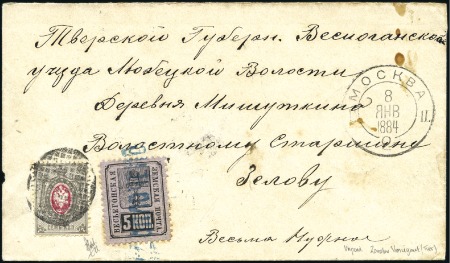 Тверской Губерн. Весьегонскаго
уезда Любецкой Волости
Деревня Мишуткина
Волостному Старшине
Белову
Весьма Нужное
МОСКВА
8
ЯНВ
1884
II.
ВЕСЬЕГОНСКАЯ
ЗЕМСКАЯ ПОЧТА
5 КОП